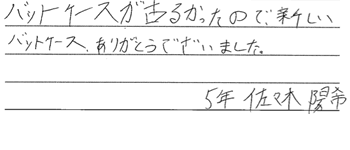 バットケースが古るかったので、新しい
バットケース、ありがとうございました。
5年 佐々木 陽希